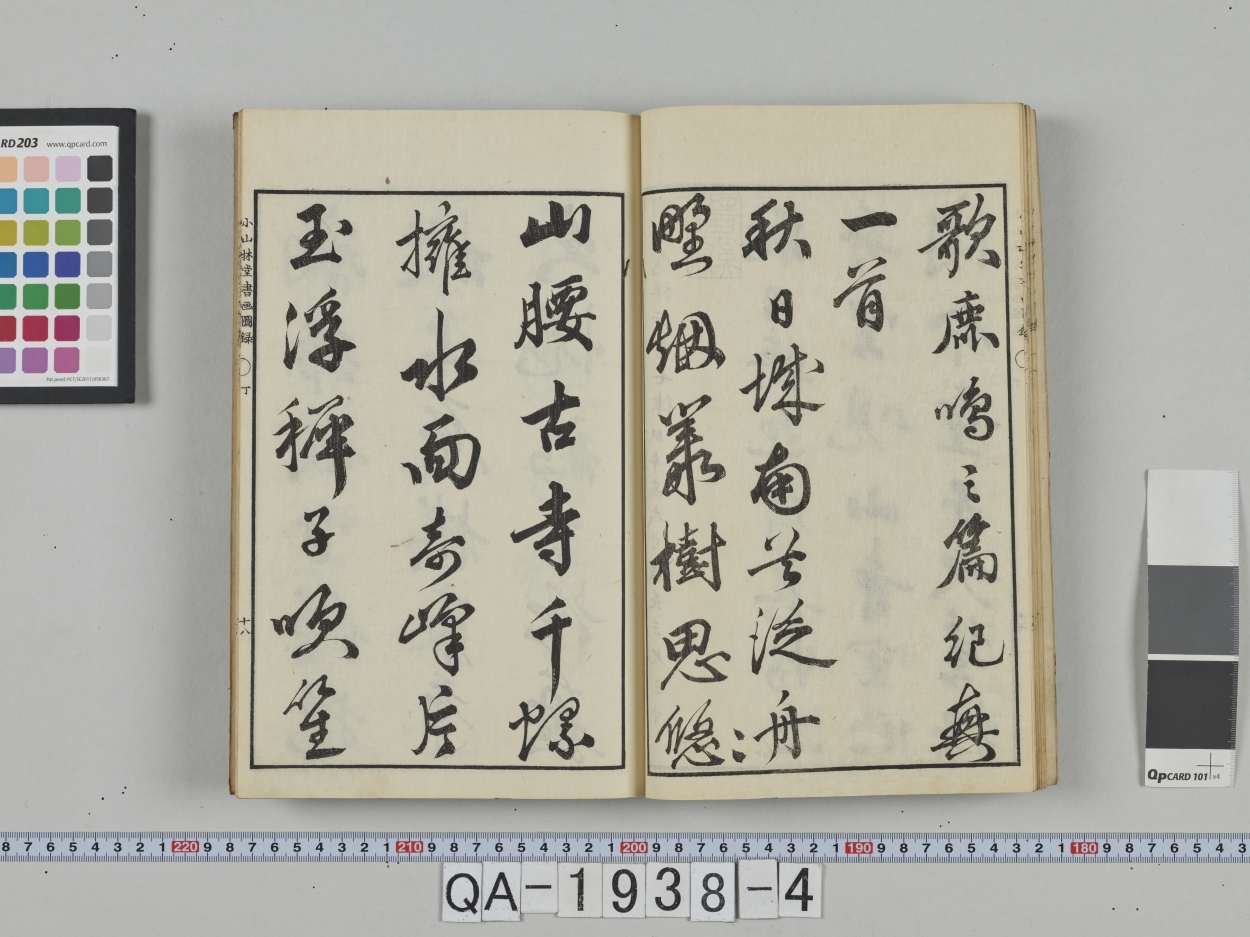 歌鹿鳴之篇紀興
一首
秋日城南共泛舟
墅烟叢樹思悠〻
山腰古寺千螺
擁水面奇峰片
玉浮稚子吹笙
小山林堂書画圖録 〇 丁
十八
RD203 www.qpcard.com
QPCARD 101 v4
8 7 6 5 4 3 2 1 220 9 8 7 6 5 4 3 2 1 210 9 8 7 6 5 4 3 2 1 200 9 8 7 6 5 4 3 2 1 190 9 8 7 6 5 4 3 2 1 180 9 8 7 6 5 4 3
QA-1938-4